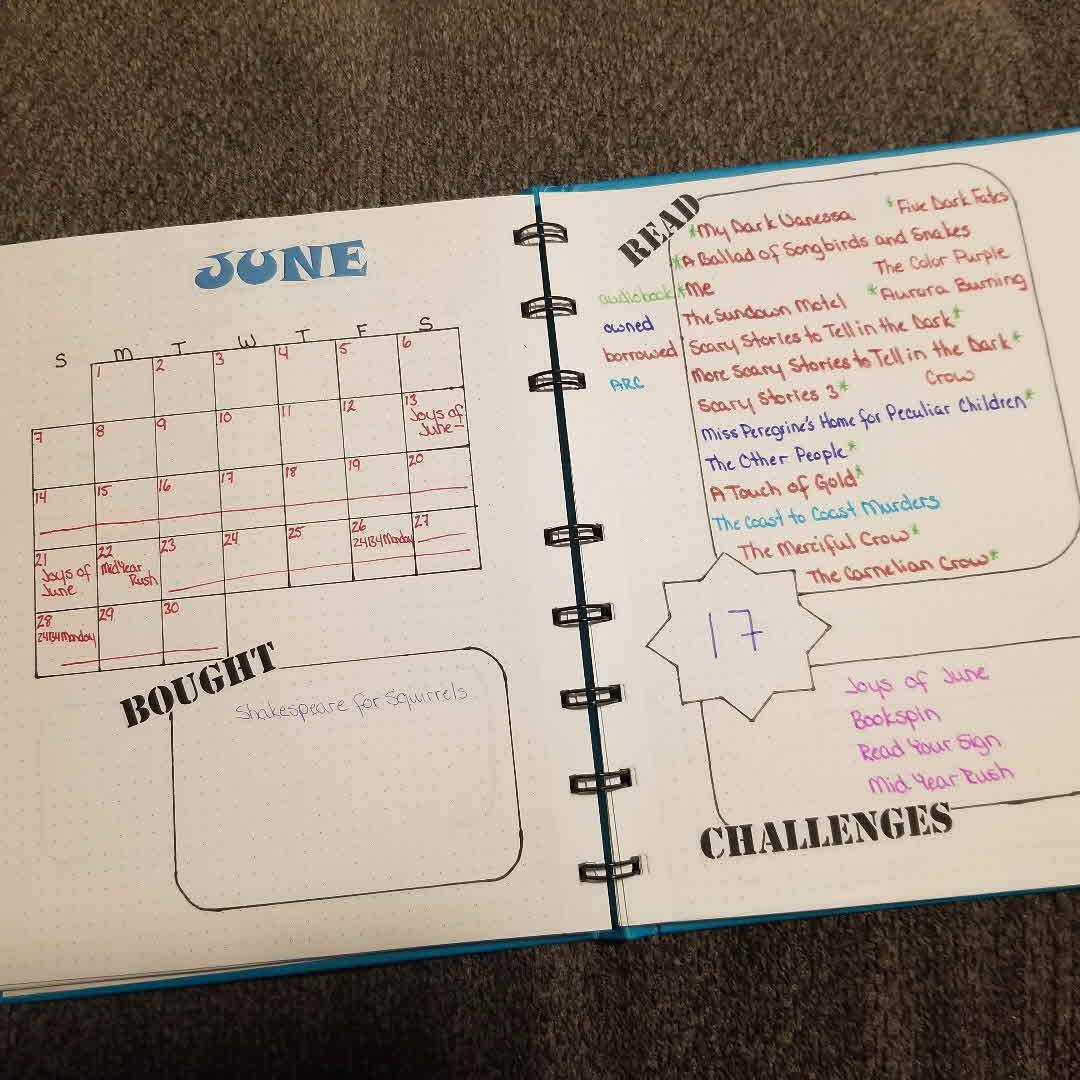 JUNE
S M T W T F S
1 2 3 4 5 6
7 8 9 10 11 12 13 Joys of June
14 15 16 17 18 19 20
21 Joys of June 22 Mid Year Rush 23 24 25 26 24B4Monday 27
28 24B4Monday 29 30
BOUGHT
Shakespeare for Squirrels
READ
audiobook
owned
borrowed
ARC
*My Dark Vanessa *Five Dark Fates
*A Ballad of Songbirds and Snakes
The Color Purple
*Me
The Sundown Motel *Aurora Burning
Scary Stories to Tell in the Dark*
More Scary Stories to Tell in the Dark*
Scary Stories 3* Crow
Miss Peregrine's Home for Peculiar Children*
The Other People*
A Touch of Gold*
The Coast to Coast Murders
The Merciful Crow*
The Carnelian Crow*
17
Joys of June
Bookspin
Read Your Sign
Mid Year Rush
CHALLENGES